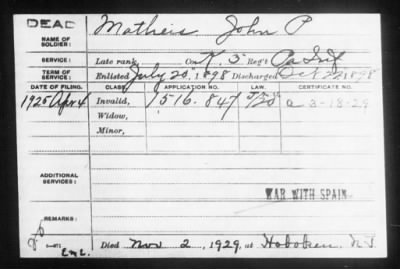 DEAD
Matheis John P
NAME OF SOLDIER:
SERVICE: Late rank, Co. K, 5 Reg't Pa Inf
TERM OF SERVICE: Enlisted July 20, 1898 Discharged Oct 22, 1898
DATE OF FILING. CLASS. APPLICATION NO. LAW. CERTIFICATE NO.
1925 Apr 4 Invalid, 1516.847 a 3-18-29
Widow,
Minor,
ADDITIONAL SERVICES:
WAR WITH SPAIN.
REMARKS:
Died Nov 2, 1929, at Hoboken, NJ